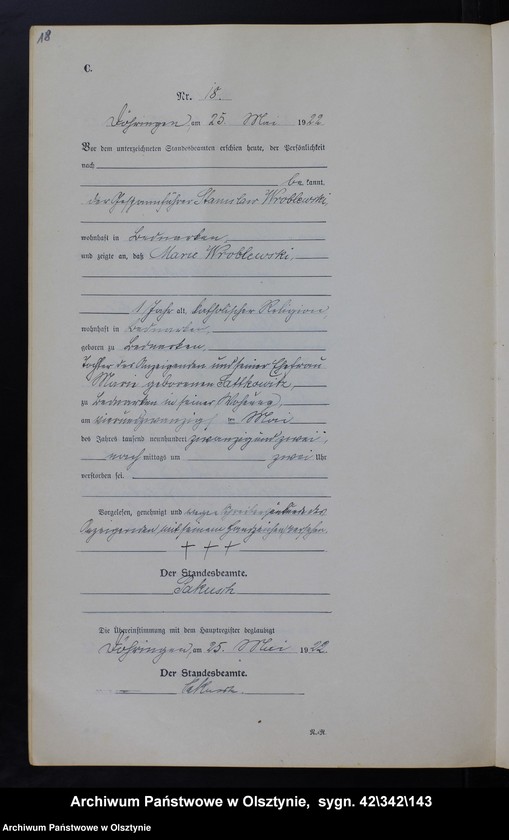 18
C.
Nr. 18.
Döhringen, am 25. Mai 1922
Vor dem unterzeichneten Standesbeamten erschien heute, der Persönlichkeit
nach
be kannt,
der Gespannführer Stanislaw Wroblewski,
wohnhaft in Bednarken,
und zeigte an, daß Marie Wroblewski,
1 Jahr alt, katholischer Religion,
wohnhaft in Bednarken,
geboren zu Bednarken,
Tochter des Anzeigenden und seiner Ehefrau
Marie geborenen
zu Bednarken in seiner Wohnung,
am vierundzwanzigsten Mai
des Jahres tausend neunhundert zwanzig und zwei,
nach mittags um zwei Uhr
verstorben sei.
Vorgelesen, genehmigt und wegen des
Anzeigenden mit seinem Handzeichen versehen
† † †
Der Standesbeamte.
Die Übereinstimmung mit dem Hauptregister beglaubigt
Döhringen, am 25. Mai 1922
Der Standesbeamte.
Archiwum Państwowe w Olsztynie, sygn. 42\342\143
Archiwum Państwowe w Olsztynie